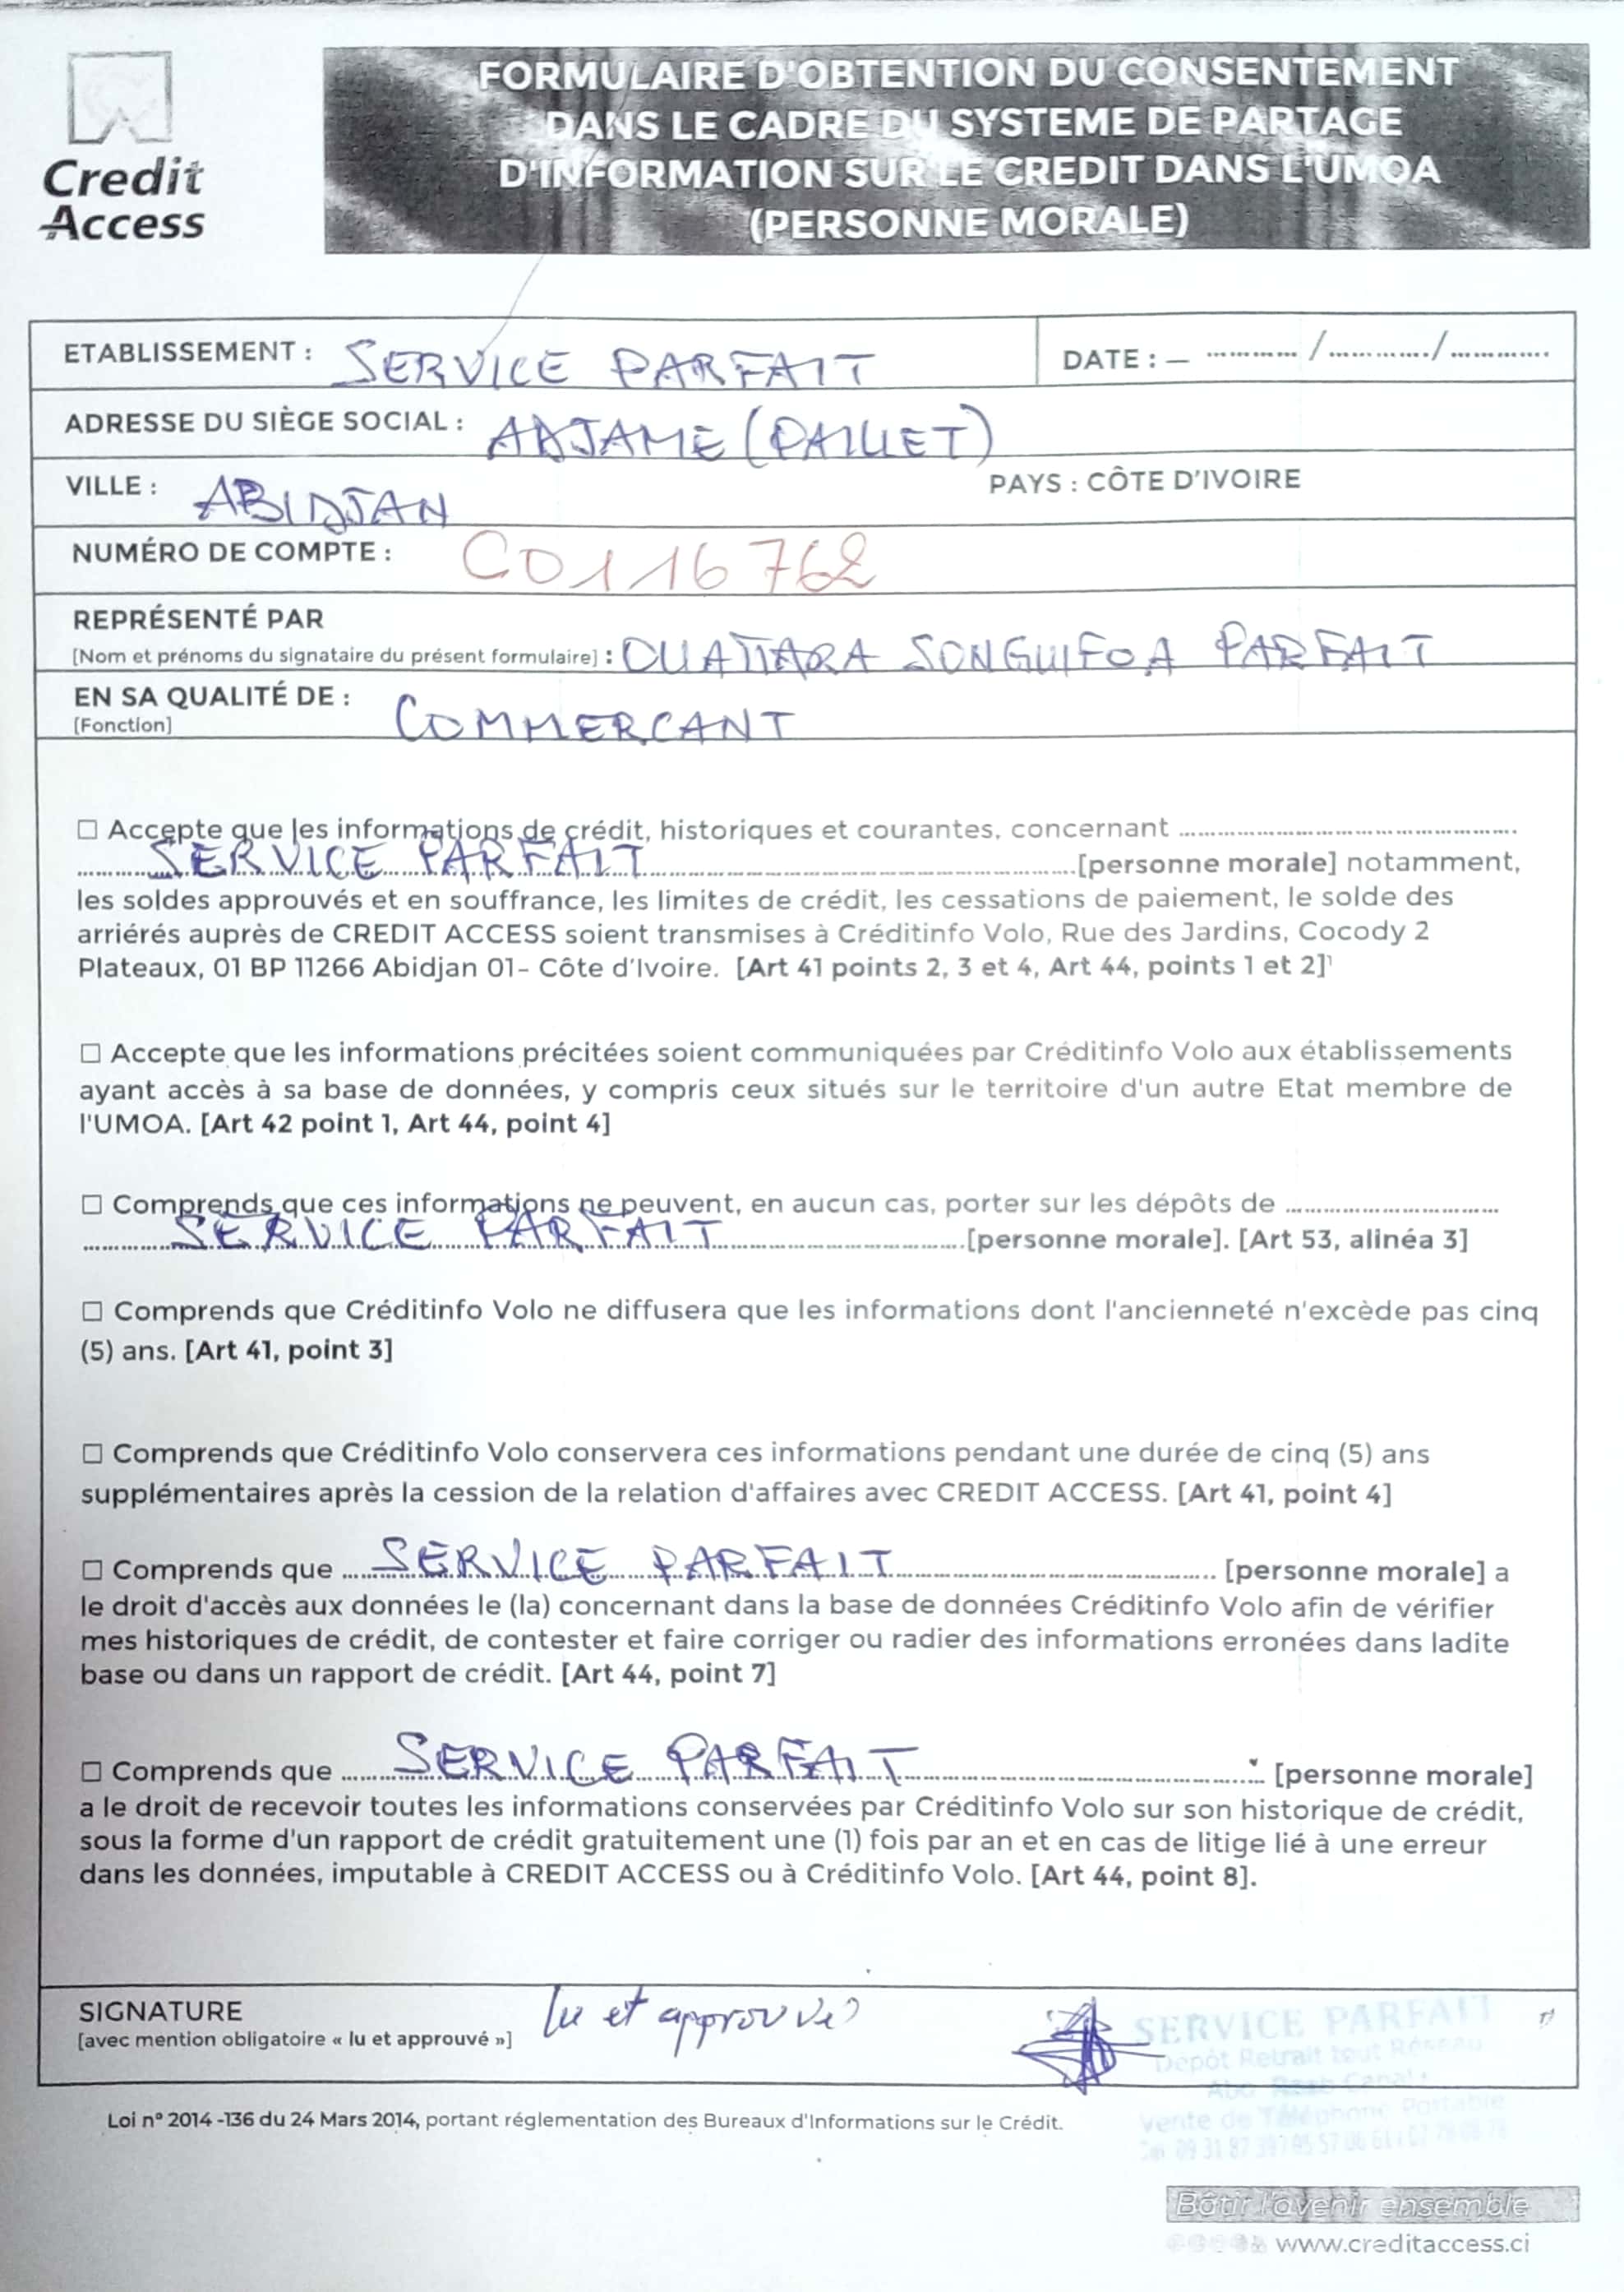 Credit
Access
FORMULAIRE D'OBTENTION DU CONSENTEMENT
DANS LE CADRE DU SYSTEME DE PARTAGE
D'INFORMATION SUR LE CREDIT DANS L'UMOA
(PERSONNE MORALE)
ETABLISSEMENT : SERVICE PARFAIT DATE : – ............ /............./.............
ADRESSE DU SIÈGE SOCIAL : ADJAME (PAILLET)
VILLE : ABIDJAN PAYS : CÔTE D'IVOIRE
NUMÉRO DE COMPTE : C0116762
REPRÉSENTÉ PAR
[Nom et prénoms du signataire du présent formulaire] : OUATTARA SONGUIFOA PARFAIT
EN SA QUALITÉ DE : COMMERCANT
[Fonction]
☐ Accepte que les informations de crédit, historiques et courantes, concernant ..............................
SERVICE PARFAIT [personne morale] notamment,
les soldes approuvés et en souffrance, les limites de crédit, les cessations de paiement, le solde des
arriérés auprès de CREDIT ACCESS soient transmises à Créditinfo Volo, Rue des Jardins, Cocody 2
Plateaux, 01 BP 11266 Abidjan 01- Côte d'Ivoire. [Art 41 points 2, 3 et 4, Art 44, points 1 et 2]¹
☐ Accepte que les informations précitées soient communiquées par Créditinfo Volo aux établissements
ayant accès à sa base de données, y compris ceux situés sur le territoire d'un autre Etat membre de
l'UMOA. [Art 42 point 1, Art 44, point 4]
☐ Comprends que ces informations ne peuvent, en aucun cas, porter sur les dépôts de ..............................
SERVICE PARFAIT [personne morale]. [Art 53, alinéa 3]
☐ Comprends que Créditinfo Volo ne diffusera que les informations dont l'ancienneté n'excède pas cinq
(5) ans. [Art 41, point 3]
☐ Comprends que Créditinfo Volo conservera ces informations pendant une durée de cinq (5) ans
supplémentaires après la cession de la relation d'affaires avec CREDIT ACCESS. [Art 41, point 4]
☐ Comprends que SERVICE PARFAIT [personne morale] a
le droit d'accès aux données le (la) concernant dans la base de données Créditinfo Volo afin de vérifier
mes historiques de crédit, de contester et faire corriger ou radier des informations erronées dans ladite
base ou dans un rapport de crédit. [Art 44, point 7]
☐ Comprends que SERVICE PARFAIT [personne morale]
a le droit de recevoir toutes les informations conservées par Créditinfo Volo sur son historique de crédit,
sous la forme d'un rapport de crédit gratuitement une (1) fois par an et en cas de litige lié à une erreur
dans les données, imputable à CREDIT ACCESS ou à Créditinfo Volo. [Art 44, point 8].
SIGNATURE lu et approuvé
[avec mention obligatoire « lu et approuvé »]
SERVICE PARFAIT
Dépôt Retrait tout Réseau
Canal+
Vente de Téléphone Portable
Loi n° 2014 -136 du 24 Mars 2014, portant réglementation des Bureaux d'Informations sur le Crédit.
Bâtir l'avenir ensemble
www.creditaccess.ci